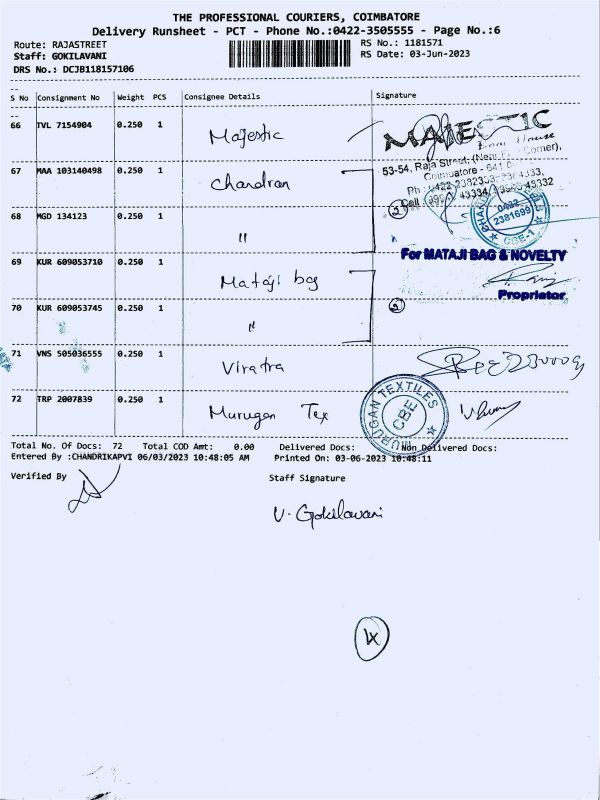 THE PROFESSIONAL COURIERS, COIMBATORE
Delivery Runsheet - PCT - Phone No.:0422-3505555 - Page No.:6
Route: RAJASTREET RS No.: 1181571
Staff: GOKILAVANI RS Date: 03-Jun-2023
DRS No.: DCJB118157106
S No Consignment No Weight PCS Consignee Details Signature
66 TVL 7154904 0.250 1 Majestic
MAJESTIC
House
53-54, Raja Street, Corner),
Coimbatore - 641
67 MAA 103140498 0.250 1 Chandran
Ph : 0422-2382333,
Cell 43334, 49332
68 MGD 134123 0.250 1 "
2
0422
2381699
CBE-1
For MATAJI BAG & NOVELTY
69 KUR 609053710 0.250 1 Mataji bag
Proprietor
70 KUR 609053745 0.250 1 "
2
71 VNS 505036555 0.250 1 Viratra
72 TRP 2007839 0.250 1 Murugan Tex
MURUGAN TEXTILES
CBE
Total No. Of Docs: 72 Total COD Amt: 0.00 Delivered Docs: Non Delivered Docs:
Entered By :CHANDRIKAPVI 06/03/2023 10:48:05 AM Printed On: 03-06-2023 10:48:11
Verified By Staff Signature
V. Gokilavani